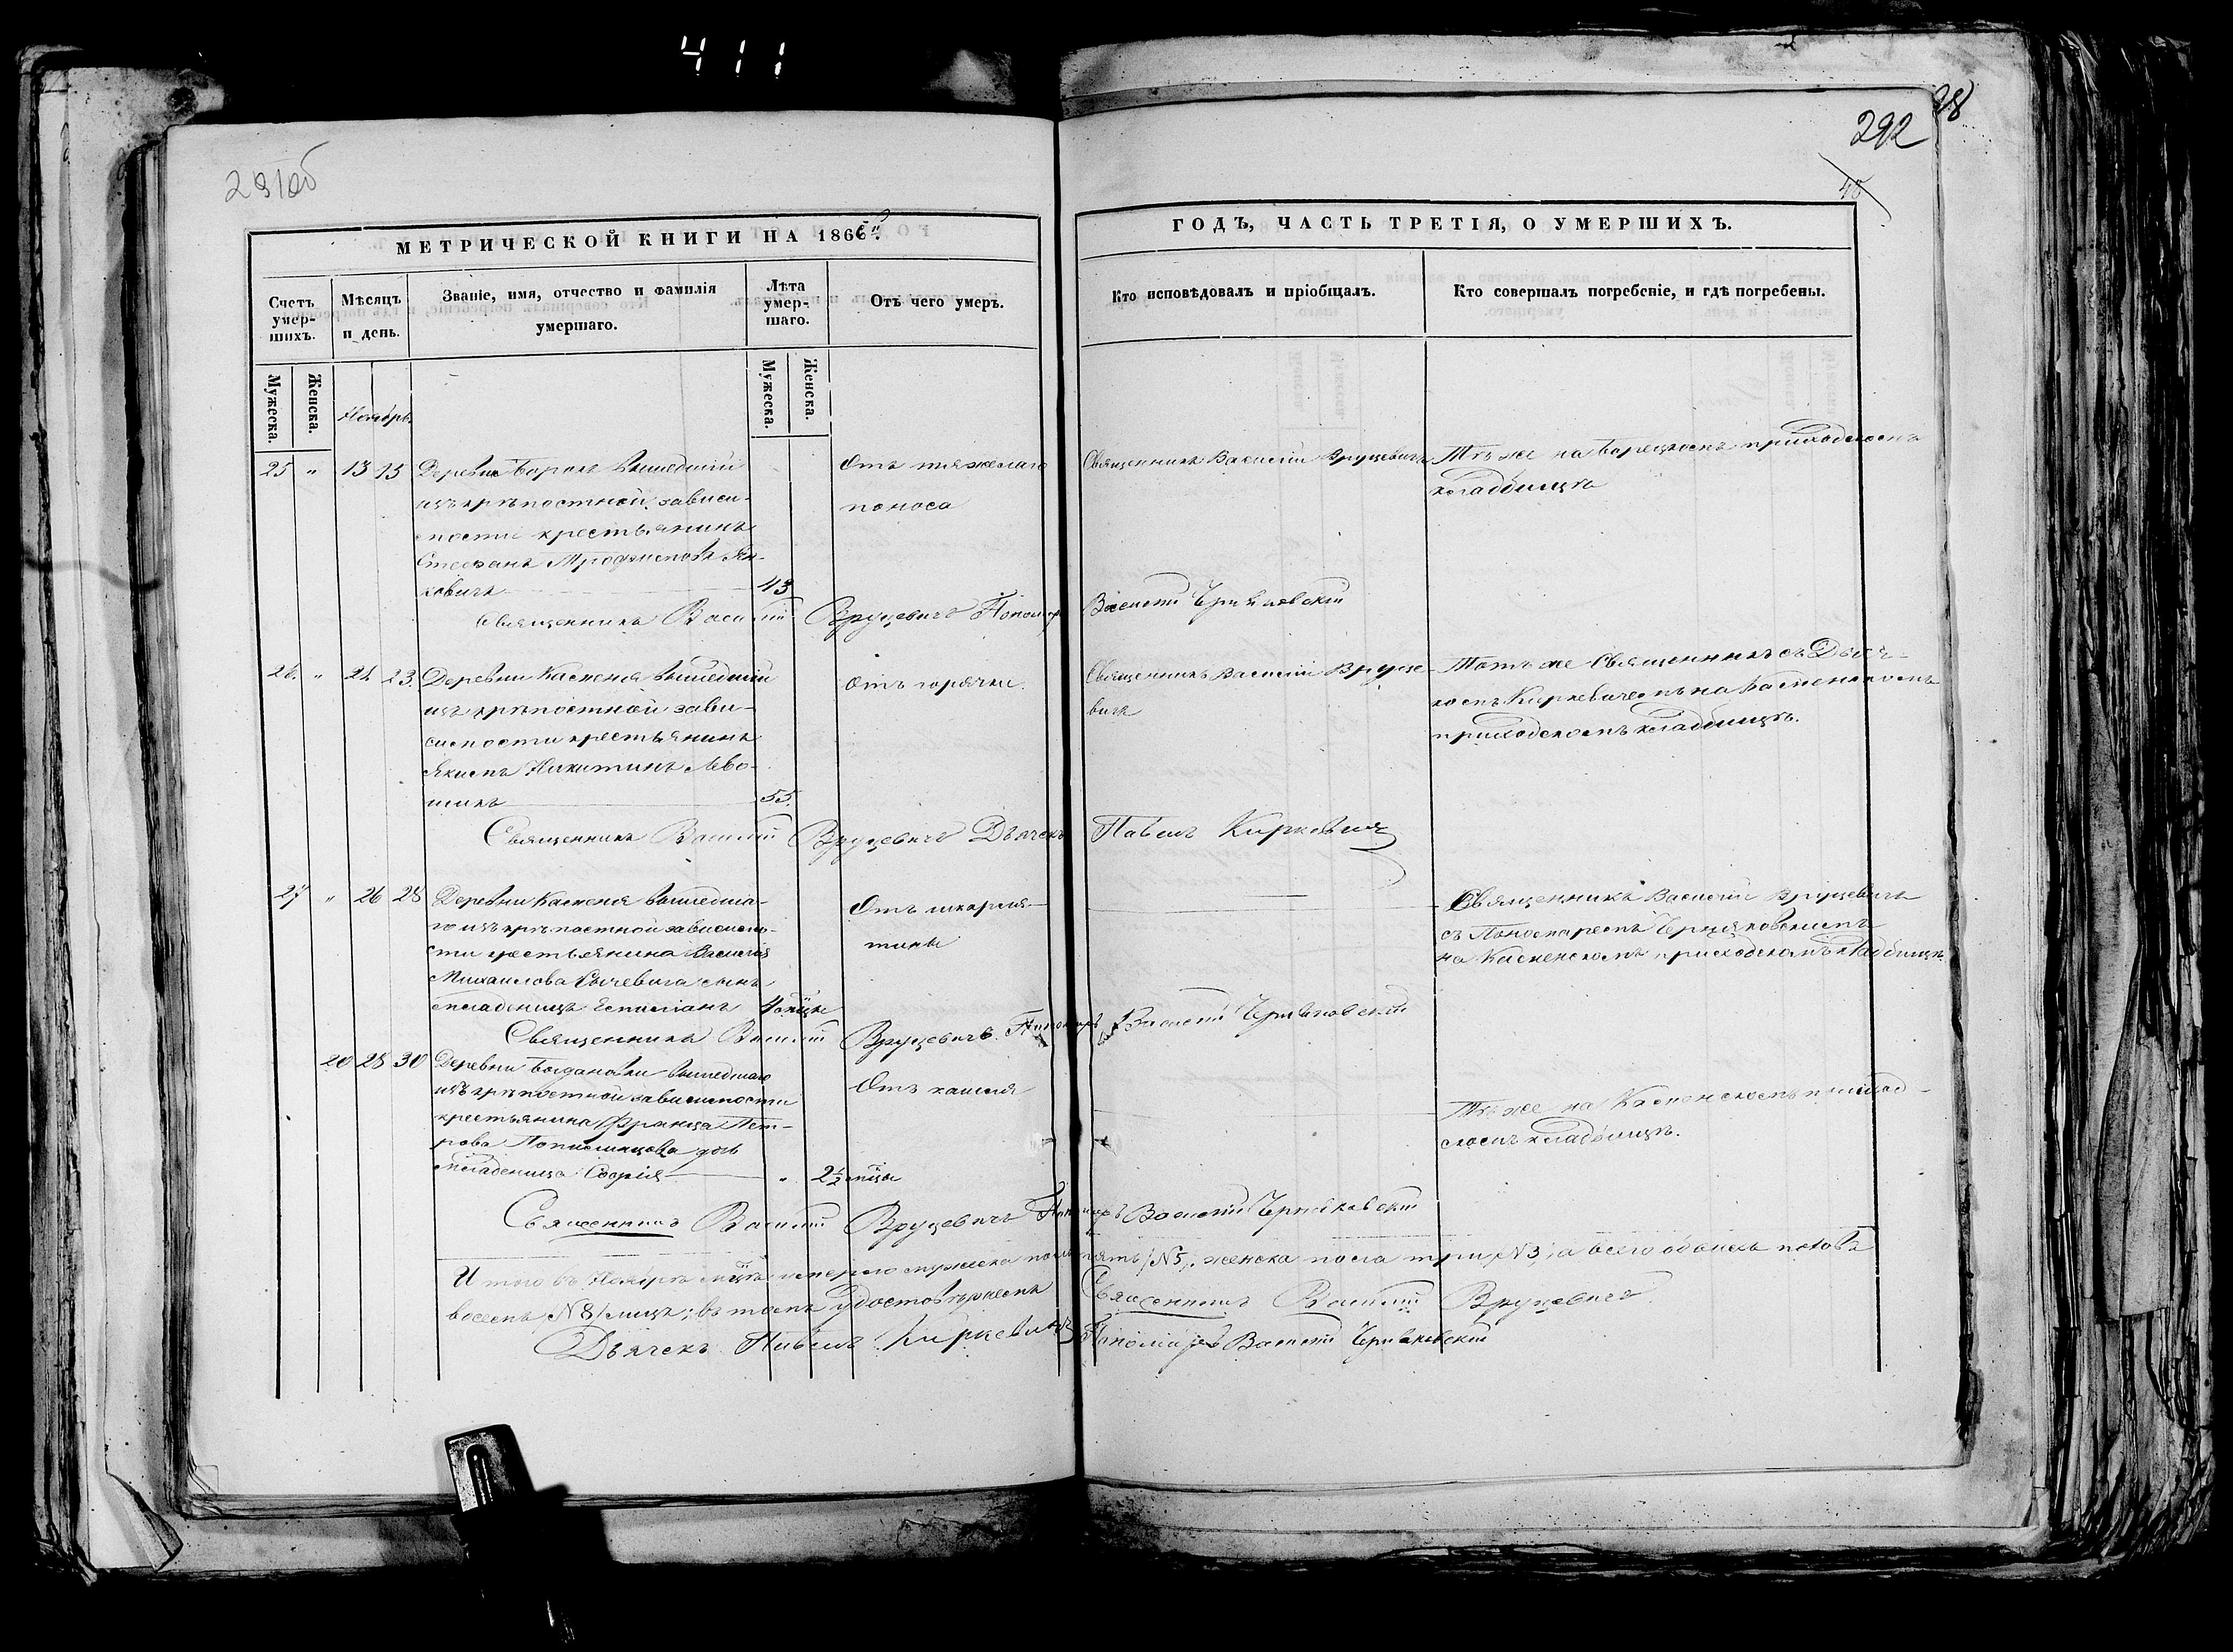 411
291об
98
292
40
МЕТРИЧЕСКОЙ КНИГИ НА 1866й
ГОДЪ, ЧАСТЬ ТРЕТІЯ, О УМЕРШИХЪ.
Счетъ умер-
шихъ.
Мѣсяцъ
и день.
Званіе, имя, отчество и фамилія
умершаго.
Лѣта
умер-
шаго.
Отъ чего умеръ.
Кто исповѣдовалъ и пріобщалъ.
Кто совершалъ погребеніе, и гдѣ погребены.
Мужеска.
Женска.
Мужеска.
Женска.
Ноябрь
25 " 13 15 Деревни Борокъ вышедшій
изъ крѣпостной зависи-
мости крестьянинъ
Стефанъ Ян-
ковичъ 43
Отъ тяжелаго
поноса
Священникъ Василій Вруцевичъ
Тѣ же на приходскомъ
кладбищѣ
Священникъ Василій Вруцевичъ Пономарь Василій
26. " 21 23. Деревни Каменя вышедшій
изъ крѣпостной зави-
симости крестьянинъ
Якимъ Никитинъ Лево-
55.
Отъ горячки.
Священникъ Василій Вруце-
вичъ
Тотъ же Священникъ съ Дьяч-
комъ Киркевичемъ на Каменскомъ
приходскомъ кладбищѣ.
Священникъ Василій Вруцевичъ Дьячекъ Павелъ Киркевичъ
27 " 26 28 Деревни Каменя вышедша-
го изъ крѣпостной зависимо-
сти крестьянина Василія
Михаилова сынъ
младенецъ Емиліанъ 4 мѣцы
Отъ шкарля-
тины
Священникъ Василій Вруцевичъ
съ Пономаремъ
на Каменскомъ приходскомъ кладбищѣ
Священникъ Василій Вруцевичъ. Пономарь Василій
20 28 30 Деревни Богдановки вышедшаго
изъ крѣпостной зависимости
крестьянина Франца Пет-
рова дочь
младеница Софія " 2½ мѣцы
Отъ кашля
Тѣ же на Каменскомъ приход-
скомъ кладбищѣ.
Священникъ Василій Вруцевичъ Пономарь Василій
Итого въ Ноябрѣ мѣцѣ умерло мужеска пола пять /№5/, женска пола три /№3/, а всего обоихъ половъ
восемь /№8/ лицъ; въ томъ удостовѣряемъ Священникъ Василій Вруцевичъ.
Дьячекъ Павелъ Киркевичъ Пономарь Василій